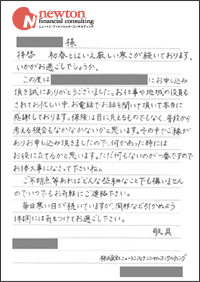 newton
financial consulting
ニュートン・フィナンシャル・コンサルティング
様
拝啓 初春とはいえ厳しい寒さが続いております。
いかがお過ごしでしょうか。
この度は
にお申し込み
頂き誠にありがとうございました。お仕事や地域の役員も
されてお忙しい中、お電話でお話を聞いて頂いて本当に
感謝しております。保険は目に見えるものでなく、普段から
考える機会もなかなかないかと思います。その中でご縁が
ありお申し込み頂きましたので、何かあった時には
お役に立てるかと思います。ただ何もないのが一番ですので
お体大事になさって下さいね。
ご不明点等あればどんな些細なことでも構いません
のでいつでもお気軽にご連絡下さい。
毎日寒い日が続いていますが、風邪など引かぬよう
体調には気をつけてお過ごし下さい。
敬具
株式会社ニュートン・フィナンシャル・コンサルティング